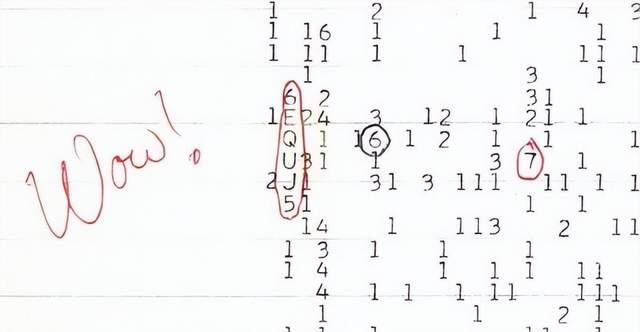 1 2 1 4 3
1 16 1 1 1
1 11 1 1 11 1
1 3 1
6 2 31
1 E 24 3 12 1 21 1
Q 1 16 1 2 1 1 1
Wow! U 31 1 3 7 1
2 J 1 31 3 111 11 1 1
5 1 1 1
14 1 113 2 11
1 3 1 1 1
1 4 1 1 11
4 1 1 1 11 111
1 1 2 1